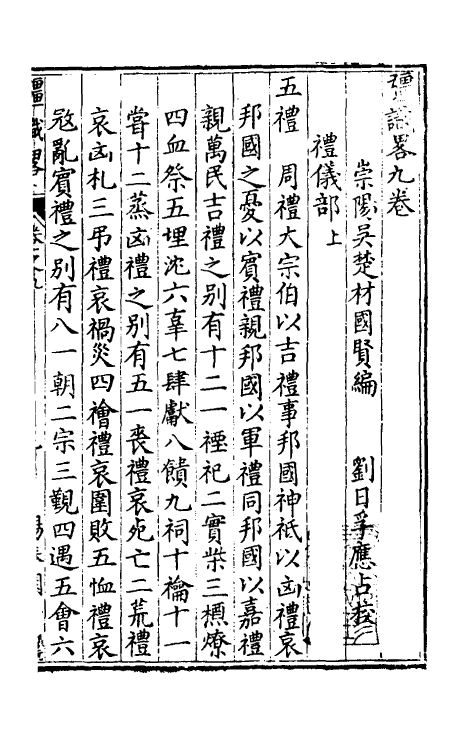 彊識畧九卷
崇陽吳楚材國賢編　劉日孚應占校
禮儀部上
五禮　周禮大宗伯以吉禮事邦國神祇以凶禮哀
邦國之憂以賓禮親邦國以軍禮同邦國以嘉禮
親萬民吉禮之別有十二一禋祀二實柴三槱燎
四血祭五埋沈六辜七肆獻八饋九祠十禴十一
嘗十二蒸凶禮之別有五一喪禮哀死亡二荒禮
哀凶札三弔禮哀禍災四禬禮哀圍敗五恤禮哀
寇亂賓禮之別有八一朝二宗三覲四遇五會六
彊識畧　卷之九